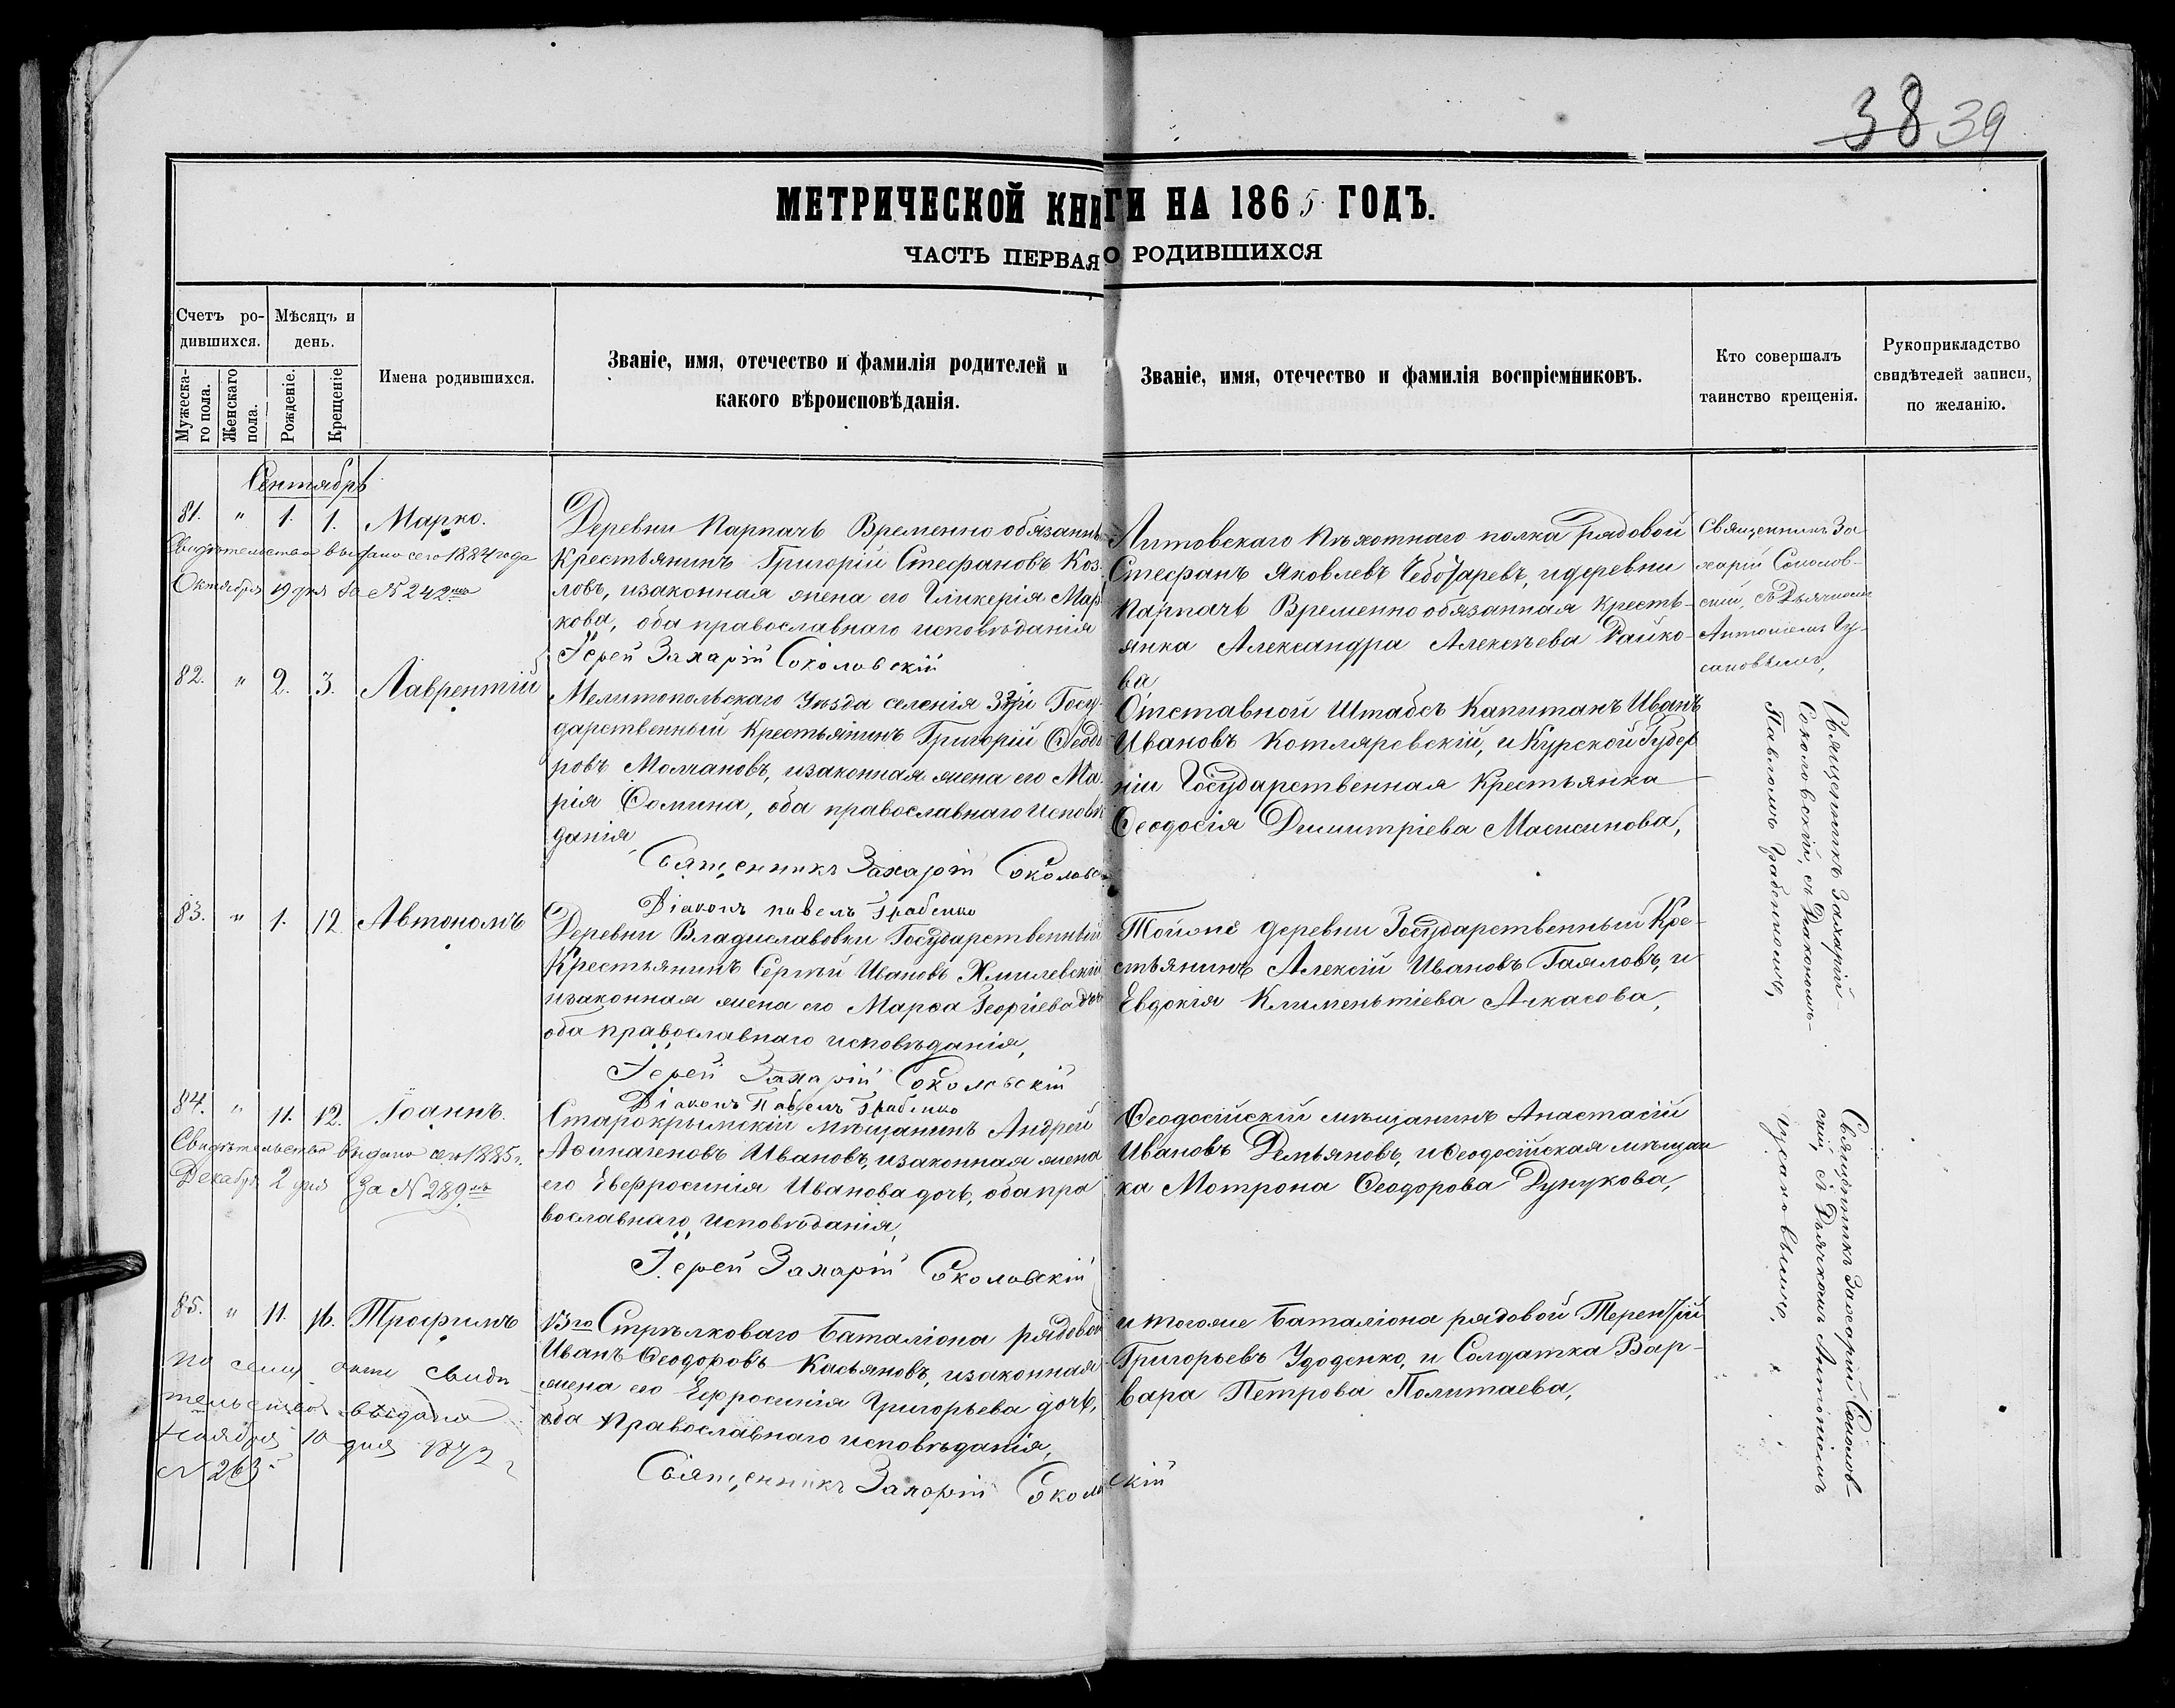 38 39
МЕТРИЧЕСКОЙ КНИГИ НА 1865 ГОДЪ.
ЧАСТЬ ПЕРВАЯ О РОДИВШИХСЯ
Счетъ ро-
дившихся.
Мѣсяцъ и
день.
Мужеска-
го пола.
Женскаго
пола.
Рожденіе.
Крещеніе
Имена родившихся.
Званіе, имя, отечество и фамилія родителей и
какого вѣроисповѣданія.
Званіе, имя, отечество и фамилія воспріемниковъ.
Кто совершалъ
таинство крещенія.
Рукоприкладство
свидѣтелей записи,
по желанію.
Сентябрь
81. " 1. 1. Марко.
Свидѣтельство выдано сего 1884 года
Октября 19 дня за N 242мъ
Деревни Парпачь Временно обязанны
Крестьянинъ Григорій Стефановъ Коз-
ловъ, изаконная жена его Гликерія Мар-
кова, оба православнаго исповѣданія
Іерей Захарій Соколовскій
Литовскаго Пѣхотнаго полка рядовой
Стефанъ Яковлевъ Чеботаревъ, идеревни
Парпачь Временнообязанная Кресть-
янка Александра Алексѣева Райко-
ва
Священникъ За
харій Соколов-
скій, съ Дьячкомъ
Антоніемъ Гу-
сановымъ,
82. " 2. 3. Лаврентій
Мелитопольскаго Уѣзда селенія Госу-
дарственный Крестьянинъ Григорій Ѳеодо
ровъ Молчановъ, изаконная жена его Ма-
рія Ѳомина, оба православнаго исповѣ
данія,
Священникъ Захарій Соколовс
Діаконъ Павелъ Грабенко
Отставной Штабсъ Капитанъ Иванъ
Ивановъ Котляревскій, и Курской Губер
ніи Государственная Крестьянка
Ѳеодосія Димитріева Масисинова,
Священникъ Захарій
Соколовскій, съ Діакономъ
Павломъ Грабенкомъ,
83. " 1. 12. Автономъ
Деревни Владиславовки Государственный
Крестьянинъ Сергѣй Ивановъ Хмилевскій
изаконная жена его Марѳа Георгіева
оба православнаго исповѣданія,
Іерей Захарій Соколовскій
Діаконъ Павелъ Грабенко
Тойже деревни Государственный Кре-
стьянинъ Алексій Ивановъ Гаяловъ, и
Евдокія Климентіева Ачкасова,
84. " 11. 12. Іоаннъ.
Свидѣтельство выдано сего 1885г.
Декабря 2 дня За N 289мъ
Старокрымскій мѣщанинъ Андрей
Аѳинагеновъ Ивановъ, изаконная жена
его Евфросинія Иванова дочь, оба пра
вославнаго исповѣданія,
Іерей Захарій Соколовскій
Ѳеодосійскій мѣщанинъ Анастасій
Ивановъ Демьяновъ, иѲеодосійская мѣщан
ка Мотрона Ѳеодорова Дунукова,
Священникъ Захарій Соколов-
скій, съ Дьячкомъ Антоніемъ
85. " 11. 16. Трофимъ
По сему акту свидѣ
тельство выдано
Ноября 10 дня 1872 г
N 263.
13го Стрѣлковаго Баталіона рядовой
Иванъ Ѳеодоровъ Касьяновъ, изаконная
жена его Ефросинія Григорьева дочь,
оба Православнаго исповѣданія,
Священникъ Захарій Соколовскій
и тогоже Баталіона рядовой Терентій
Григорьевъ Удоденко, и Солдатка Вар-
вара Петрова Политаева,